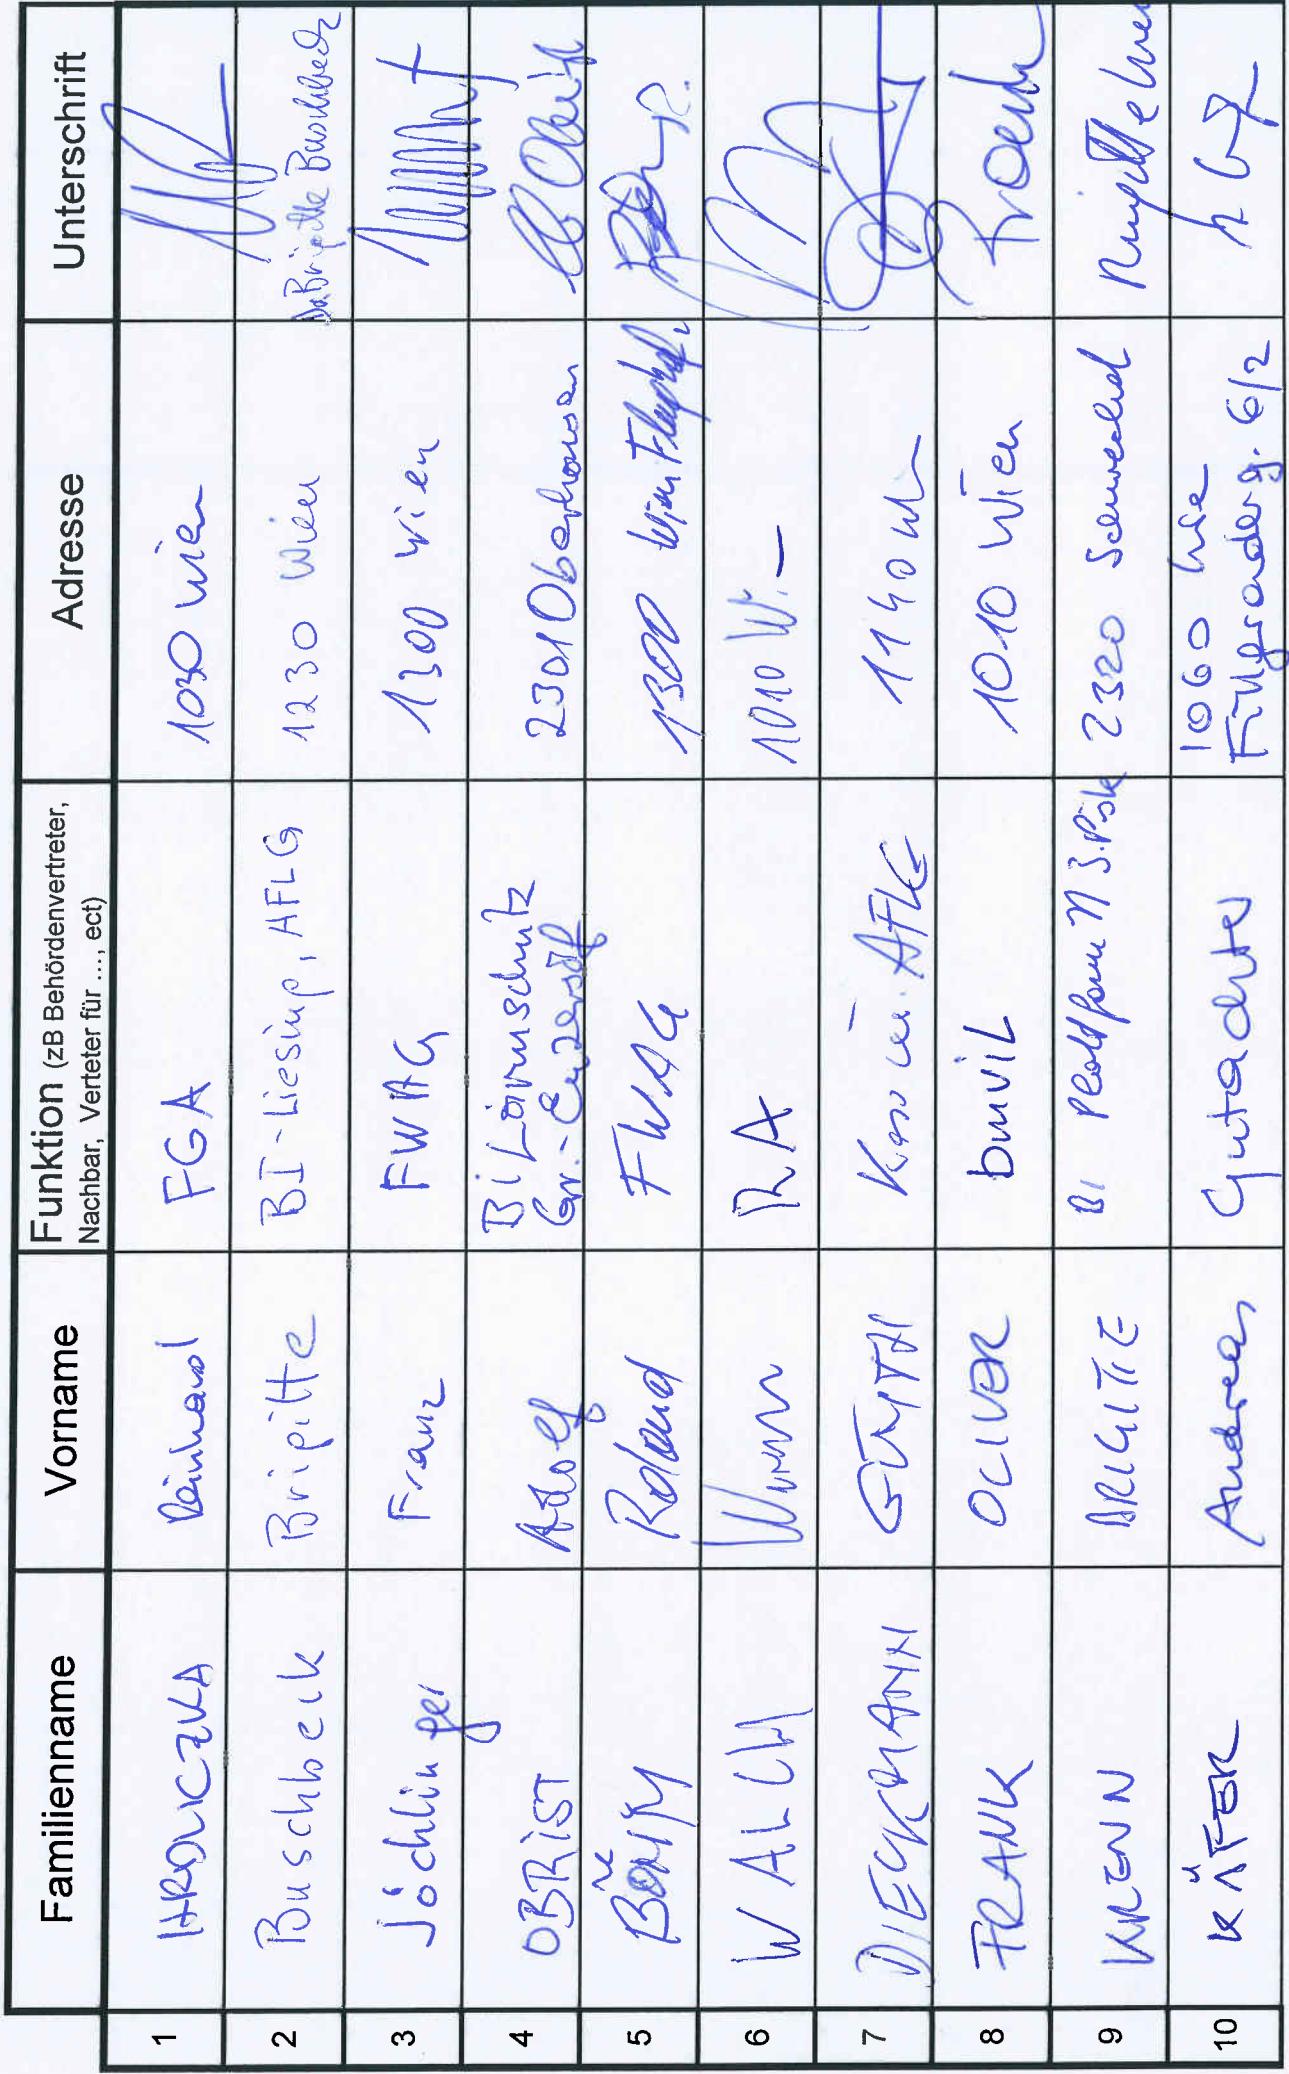 Familienname Vorname Funktion (zB Behördenvertreter, Nachbar, Verteter für ..., ect) Adresse Unterschrift
1 HROVICZKA Reinhard FGA 1030 Wien
2 Buschbeck Brigitte BI-Liesing, AFLG 1230 Wien Brigitte Buschbeck
3 Jöchlinger Franz FWAG 1300 Wien
4 OBRIST Adolf BI Lärmschutz Gr.-Enzersdf 2301 Oberhausen
5 BÖHM Roland FWAG 1300 Wien Flughafen
6 WALCH RA 1010 W.
7 DIECKMANN AFLG 1140
8 FRANK OLIVER bmvit 1010 Wien Frank
9 KRENN BRIGITTE BI Plattform 3.Piste 2320 Schwechat
10 KÄFER Andreas Gutachter 1060 Wien
Fillgraderg. 6/2